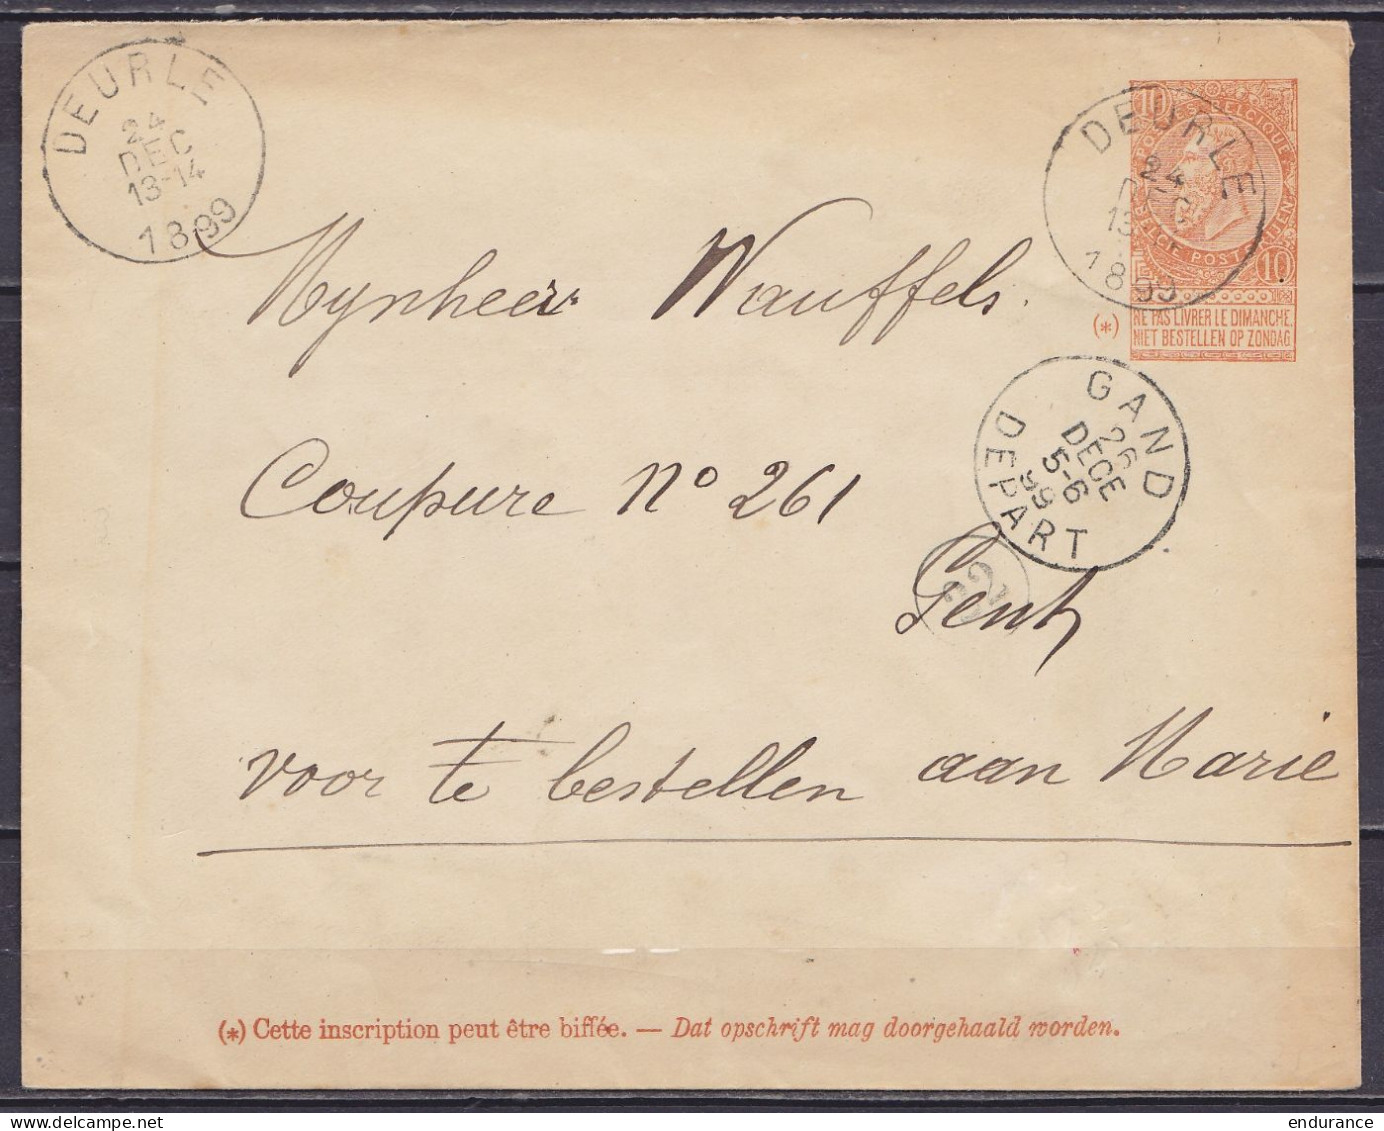 DEURLE
24
DEC
13-14
1899
10
POSTES BELGIQUE
DEURLE
24
DEC
13
1899
BELGIE POSTERIJEN
10
(*)
NE PAS LIVRER LE DIMANCHE.
NIET BESTELLEN OP ZONDAG
Mynheer Wauffels.
GAND
26
DECE
5-6
99
DEPART
Coupure No 261
Gent
voor te bestellen aan Marie
(*) Cette inscription peut être biffée. — Dat opschrift mag doorgehaald worden.
endurance